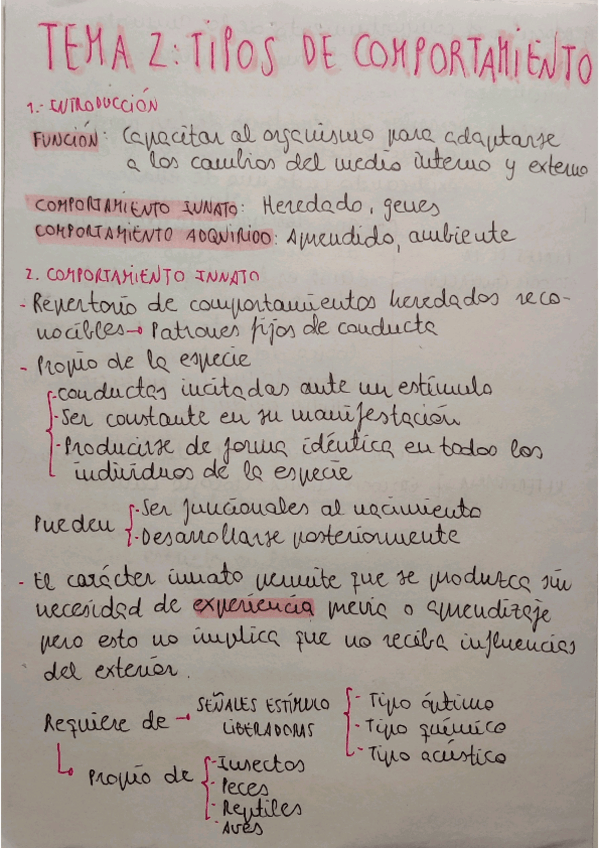 TEMA 2: TIPOS DE COMPORTAMIENTO
1.- INTRODUCCIÓN
FUNCIÓN: Capacitar al organismo para adaptarse
a los cambios del medio interno y externo
COMPORTAMIENTO INNATO: Heredado, genes
COMPORTAMIENTO ADQUIRIDO: Aprendido, ambiente
2. COMPORTAMIENTO INNATO
- Repertorio de comportamientos heredados reco-
nocibles → Patrones fijos de conducta
- Propio de la especie
- Conductas incitadas ante un estímulo
- Ser constante en su manifestación
- Producirse de forma idéntica en todos los
individuos de la especie
Pueden
- Ser funcionales al nacimiento
- Desarrollarse posteriormente
- El carácter innato permite que se produzca sin
necesidad de experiencia previa o aprendizaje
pero esto no implica que no reciba influencias
del exterior.
Requiere de → SEÑALES ESTÍMULO
LIBERADORAS
- Tipo óptimo
- Tipo químico
- Tipo acústico
Propio de
- Insectos
- Peces
- Reptiles
- Aves